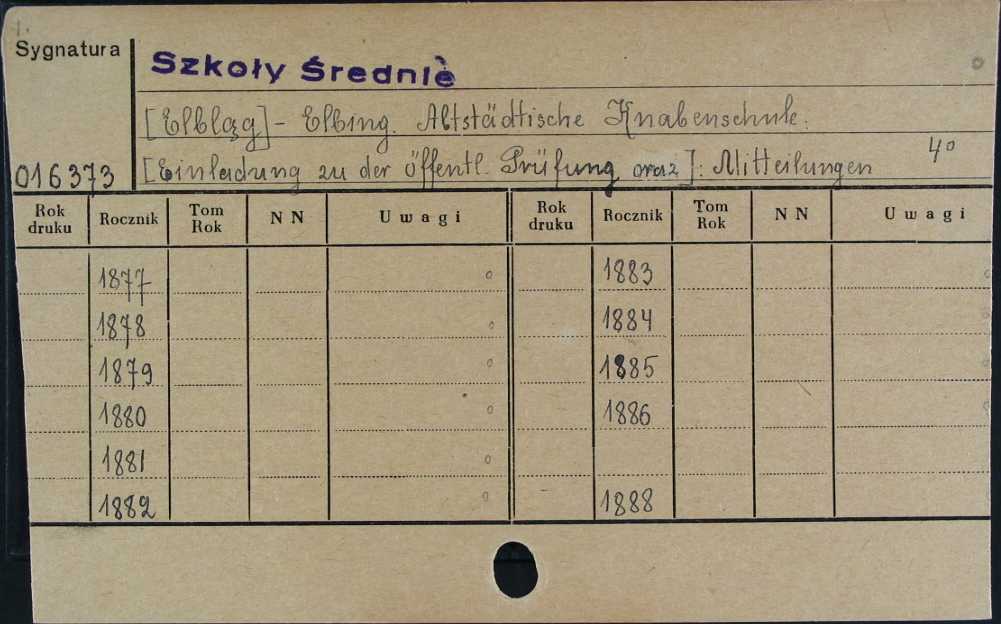 1.
Sygnatura
Szkoły Średnie
[Elbląg] - Elbing. Altstädtische Knabenschule.
[Einladung zu der öffentl. Prüfung oraz]: Mitteilungen 4°
016373
Rok druku Rocznik Tom Rok NN Uwagi Rok druku Rocznik Tom Rok NN Uwagi
1877 1883
1878 1884
1879 1885
1880 1886
1881
1882 1888